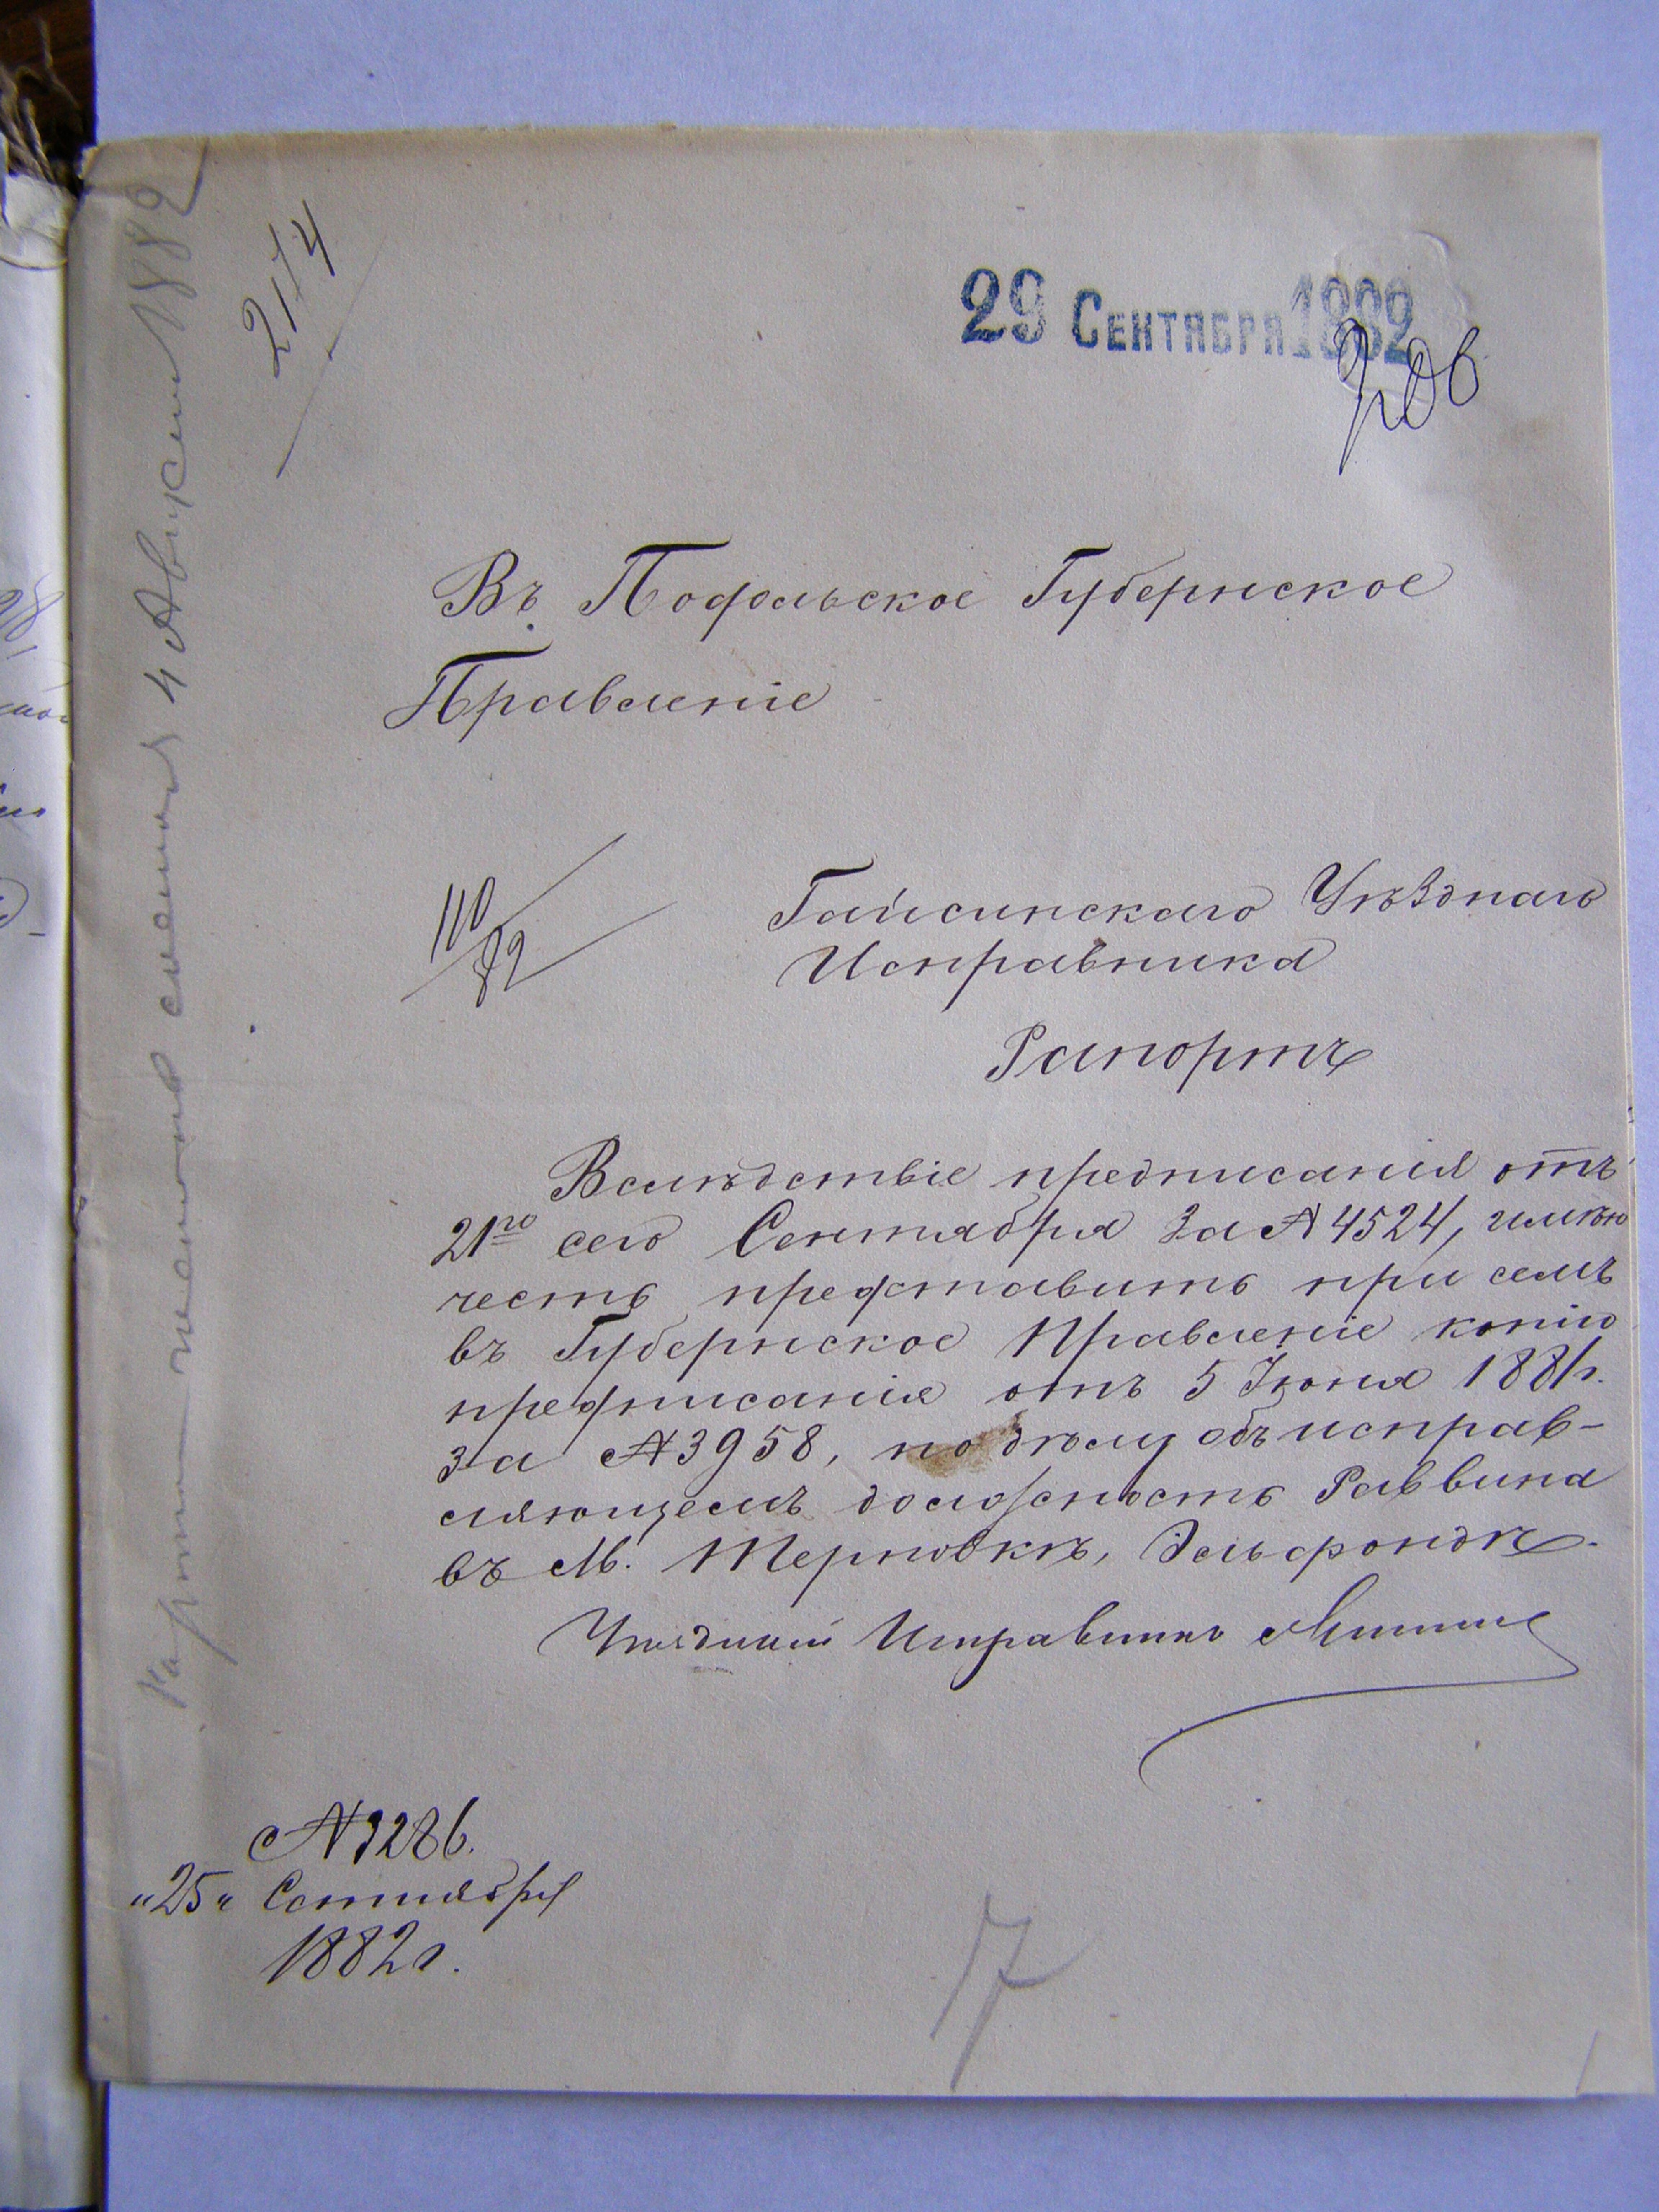 2174
29 Сентября 1882
Въ Подольское Губернское
Правленіе
110/82
Гайсинскаго Уѣзднаго
Исправника
Рапортъ
Вслѣдствіе предписанія отъ
21го сего Сентября за № 4524, имѣю
честь представить при семъ
въ Губернское Правленіе копію
предписанія отъ 5 Іюня 1881 г.
за № 3958, по дѣлу объ исправ-
ляющемъ должность Раввина
въ М. Терновкѣ, Эльфондѣ.
Уѣздный Исправникъ
№ 3286.
"25" Сентября
1882 г.
4 Августа 1882